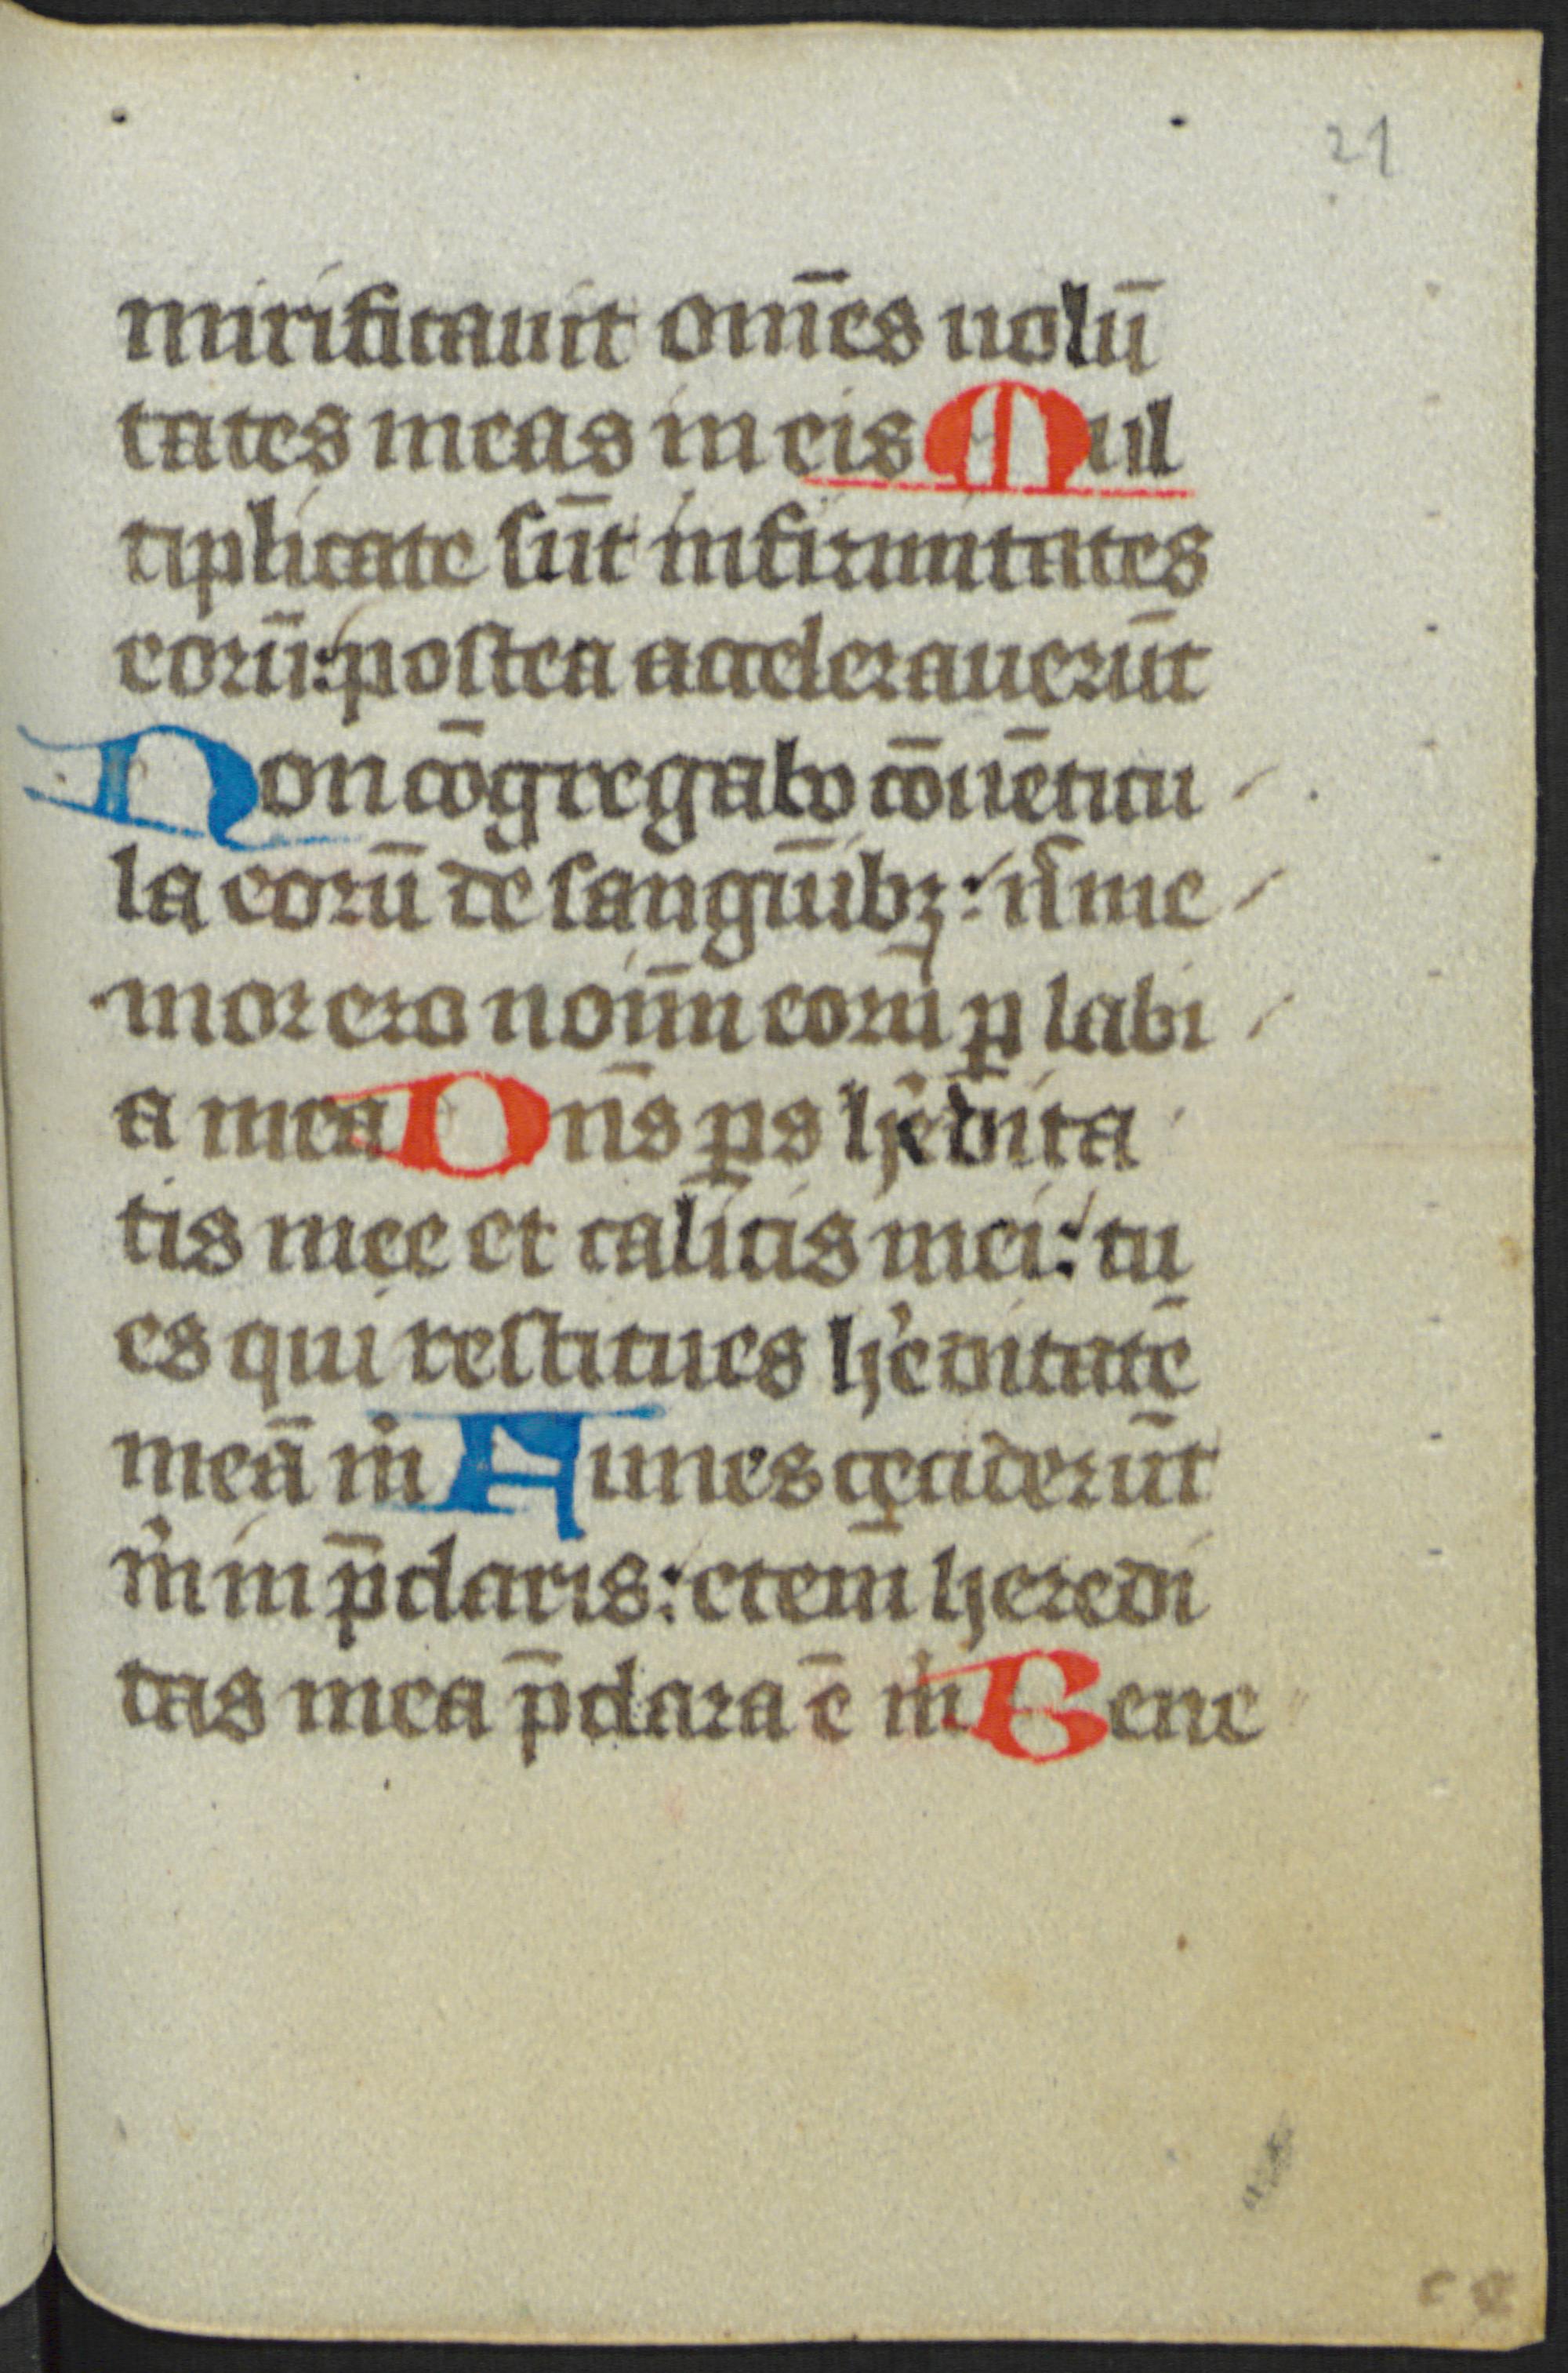 21
mirificauit om̄es uolū
tates meas in eis Mul
tiplicate sūt infirmitates
eorū: postea accelerauerūt
Non cōgregabo cōuēticu
la eorū de sanguībꝫ: n̄ me
mor ero noīm eorū ꝑ labi
a mea Dn̄s ꝑs he͛dita
tis mee et calicis mei: tu
es qui restitues h͛editatē
meā m̍ Funes ceciderūt
m̍ in p̄claris: etem̄ heredi
tas mea p̄clara ē m̍ Bene